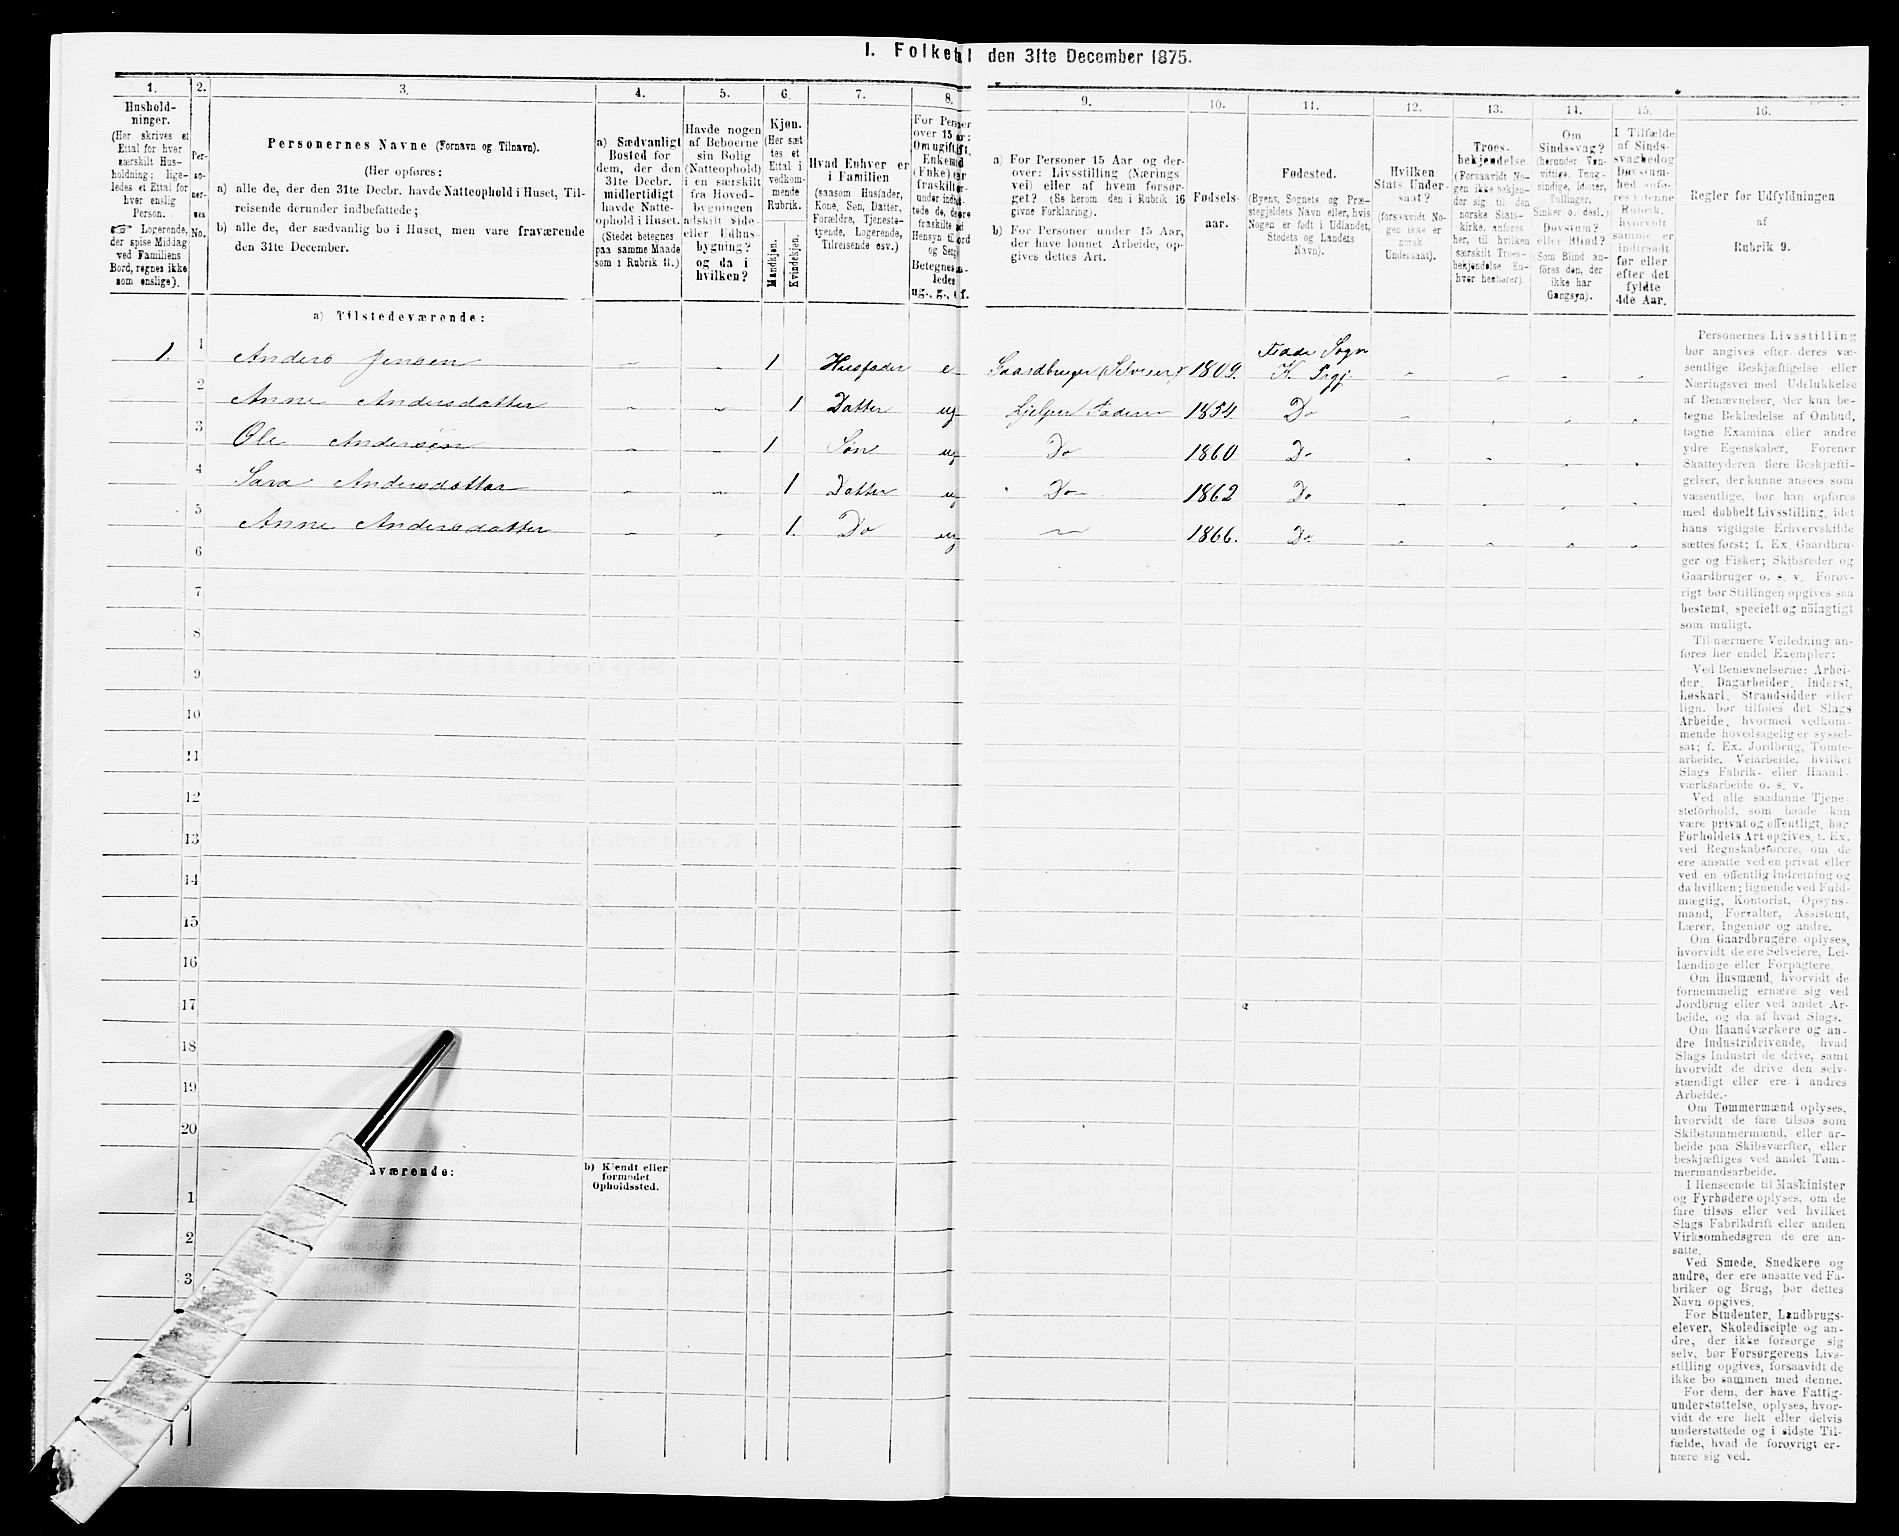 I. Folketal den 31te December 1875.
1. 2. 3. 4. 5. 6. 7. 8. 9. 10. 11. 12. 13. 14. 15. 16.
Hushold-
ninger.
(Her skrives et
Ettal for hver
særskilt Hus-
holdning; lige-
ledes et Ettal for
hver enslig
Person.
☞ Logerende,
der spise Middag
ved Familiens
Bord, regnes ikke
som enslige).
Per-
so-
ner-
nes
No.
Personernes Navne (Fornavn og Tilnavn).
(Her opføres:
a) alle de, der den 31te Decbr. havde Natteophold i Huset, Til-
reisende derunder indbefattede;
b) alle de, der sædvanlig bo i Huset, men vare fraværende
den 31te December.
a) Sædvanligt
Bosted for
dem, der den
31te Decbr.
midlertidigt
havde Natte-
ophold i Huset.
(Stedet betegnes
paa samme Maade
som i Rubrik 11.)
Havde nogen
af Beboerne
sin Bolig
(Natteophold)
i en særskilt
fra Hoved-
bygningen
adskilt Side-
eller Udhus-
bygning?
og da i
hvilken?
Kjøn.
(Her sæt
tes et
Ettal i
vedkom-
mende
Rubrik.
Mandkjøn.
Kvindekjøn.
Hvad Enhver er
i Familien
(saasom Husfader,
Kone, Søn, Datter,
Forældre, Tjeneste-
tyende, Logerende,
Tilreisende osv.)
For Per
over 15
Om ugift,
Enkem
(Enke)
fraskilt
under
fraskilte
Hensyn til
og Seng
Betegnes
ledes
ug., g., e, f.
a) For Personer 15 Aar og der-
over: Livsstilling (Nærings
vei) eller af hvem forsør-
get? (Se herom den i Rubrik 16
givne Forklaring).
b) For Personer under 15 Aar,
der have lønnet Arbeide, op-
gives dettes Art.
Fødsels-
aar.
Fødested.
(Byens, Sognets og Præ-
stegjeldets Navn eller, hvis
Nogen er født i Udlandet,
Stedets og Landets
Navn).
Hvilken
Stats Under-
saat?
(forsaavidt No-
gen ikke er
norsk
Undersaat).
Troes-
bekjendelse.
(Forsaavidt No-
gen ikke bekjen-
der sig til den
norske Stats-
kirke, anføres
her, til hvilken
særskilt Troes-
bekjendelse En-
hver henhører).
Om
Sindssvag?
(herunder Van-
vittige, Tung-
sindige, Idioter,
Tullinger,
Sinker o. desl.)
Døvstum?
eller Blind?
(Som Blind an-
føres den, der
ikke har
Gangsyn).
I Tilfælde
af Sinds-
svaghed og
Døvstum-
hed anfø-
res i denne
Rubrik,
hvorvidt
samme er
indtraadt
før eller
efter det
fyldte
4de Aar.
Regler for Udfyldningen
af
Rubrik 9.
a) Tilstedeværende:
1. 1 Anders Jensen 1 Husfader e Gaardbruger (Selveier) 1809. Fladde Sogn
K. Prgj.
2 Anne Andersdatter 1 Datter ug Hjelper Faderen 1854 Do
3 Ole Andersen 1 Søn ug Do 1860 Do
4 Sara Andersdatter 1 Datter ug Do 1862 Do
5 Anne Andersdatter 1. Do ug 1866. Do
6
7
8
9
10
11
12
13
14
15
16
17
18
19
20
værende:
b) Kjendt eller
formodet
Opholdssted.
1
2
3
Personernes Livsstilling
bør angives efter deres væ-
sentlige Beskjæftigelse eller
Næringsvei med Udelukkelse
af Benævnelser, der kun be-
tegne Beklædelse af Ombud,
tagne Examina eller andre
ydre Egenskaber. Forener
Skatteyderen flere Beskjæfti-
gelser, der kunne ansees som
væsentlige, bør han opføres
med dobbelt Livsstilling, idet
hans vigtigste Erhvervskilde
sættes først; f. Ex. Gaardbru-
ger og Fisker; Skibsreder og
Gaardbruger o. s. v. Forøv-
rigt bør Stillingen opgives saa
bestemt, specielt og nøiagtigt
som muligt.
Til nærmere Veiledning an-
føres her endel Exempler:
Ved Benævnelserne: Arbei-
der, Dagarbeider, Inderst,
Løskarl, Strandsidder eller
lign. bør tilføies det Slags
Arbeide, hvormed vedkom-
mende hovedsagelig er syssel-
sat; f. Ex. Jordbrug, Tomte-
arbeide, Veiarbeide, hvilket
Slags Fabrik- eller Haand-
værksarbeide o. s. v.
Ved alle saadanne Tjene-
steforhold, som baade kan
være privat og offentligt, bør
Forholdets Art opgives, f. Ex.
ved Regnskabsførere, om de
ere ansatte ved en privat eller
ved en offentlig Indretning og
da hvilken; lignende ved Fuld-
mægtig, Kontorist, Opsyns-
mand, Forvalter, Assistent,
Lærer, Ingeniør og andre.
Om Gaardbrugere oplyses,
hvorvidt de ere Selveiere, Lei-
lændinge eller Forpagtere.
Om Husmænd, hvorvidt de
fornemmelig ernære sig ved
Jordbrug eller ved andet Ar-
beide, og da af hvad Slags.
Om Haandværkere og an-
dre Industridrivende, hvad
Slags Industri de drive, samt
hvorvidt de drive den selv-
stændigt eller ere i andres
Arbeide.
Om Tømmermænd oplyses,
hvorvidt de fare tilsøs som
Skibstømmermænd, eller ar-
beide paa Skibsværfter, eller
beskjæftiges ved andet Tøm-
mermandsarbeide.
I Henseende til Maskinister
og Fyrbødere oplyses, om de
fare tilsøs eller ved hvilket
Slags Fabrikdrift eller anden
Virksomhedsgren de ere an-
satte.
Ved Smede, Snedkere og
andre, der ere ansatte ved Fa-
briker og Brug, bør dettes
Navn opgives.
For Studenter, Landbrugs-
elever, Skoledisciple og an-
dre, der ikke forsørge sig
selv, bør Forsørgerens Livs-
stilling opgives, forsaavidt de
ikke bo sammen med denne.
For dem, der have Fattig-
understøttelse, oplyses, hvor-
vidt de ere helt eller delvis
understøttede og i sidste Til-
fælde, hvad de forøvrigt er-
nære sig ved.